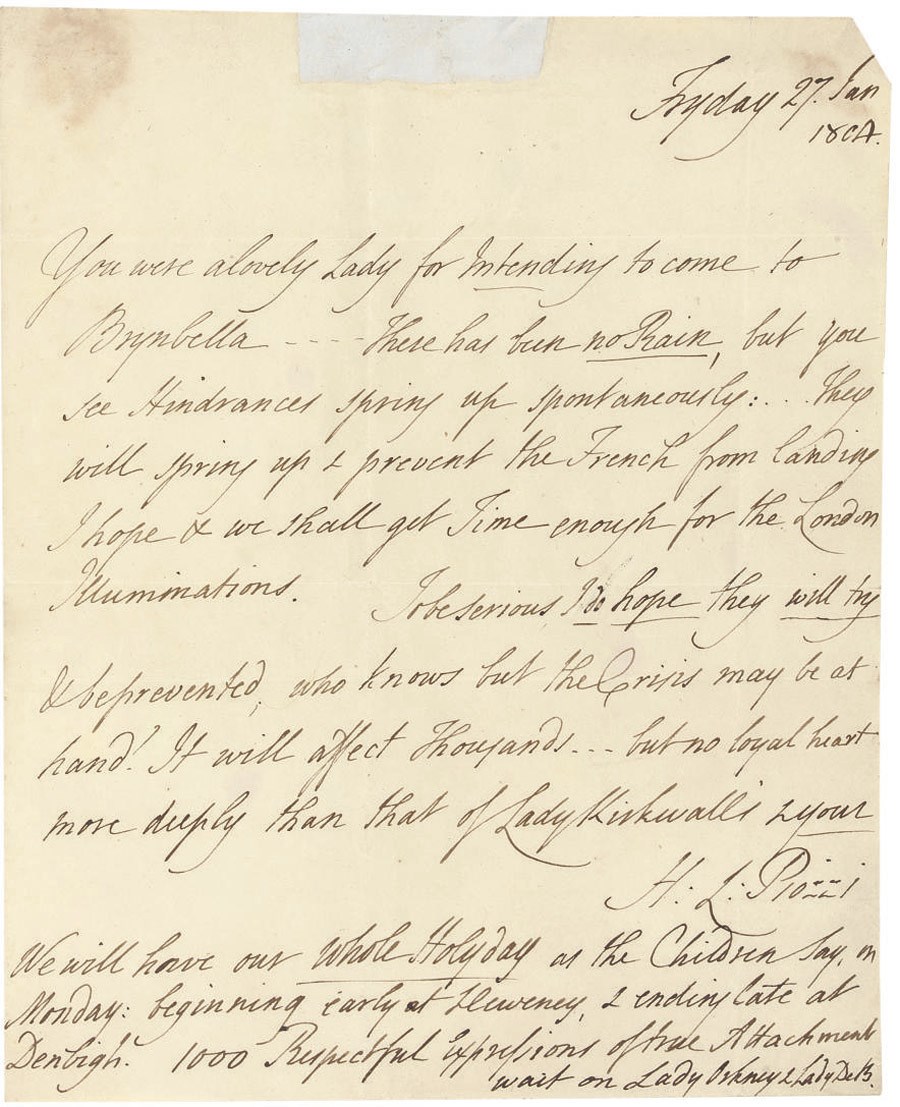 Fryday 27. Jan
1804.
You were a lovely Lady for Intending to come to
Brynbella - - - - There has been no Rain, but you
see Hindrances spring up spontaneously: . . . They
will spring up & prevent the French from landing
I hope & we shall get Time enough for the London
Illuminations.
To be serious I do hope they will try
& be prevented, who knows but the Crisis may be at
hand! It will affect Thousands - - - but no loyal heart
more deeply than that of Lady Kirkwall's & your
H: L: Piozzi
We will have our Whole Holyday as the Children say, on
Monday: beginning early at Lleweney, & ending late at
Denbigh. 1000 Respectful Expressions of true Attachment
wait on Lady Orkney & Lady De B.